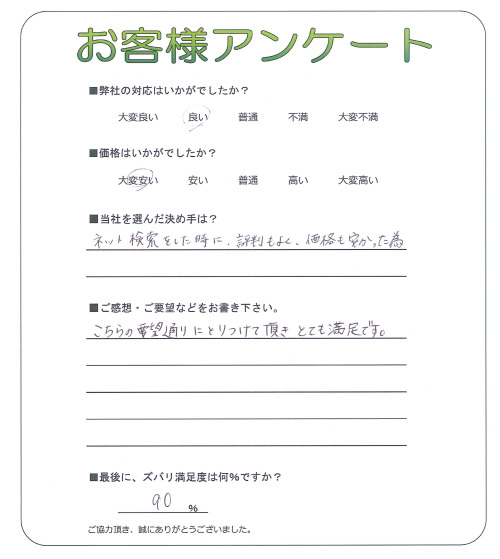 お客様アンケート
■弊社の対応はいかがでしたか？
大変良い 良い 普通 不満 大変不満
■価格はいかがでしたか？
大変安い 安い 普通 高い 大変高い
■当社を選んだ決め手は？
ネット検索をした時に、評判もよく、価格も安かった為
■ご感想・ご要望などをお書き下さい。
こちらの要望通りにとりつけて頂きとても満足です。
■最後に、ズバリ満足度は何%ですか？
90 %
ご協力頂き、誠にありがとうございました。